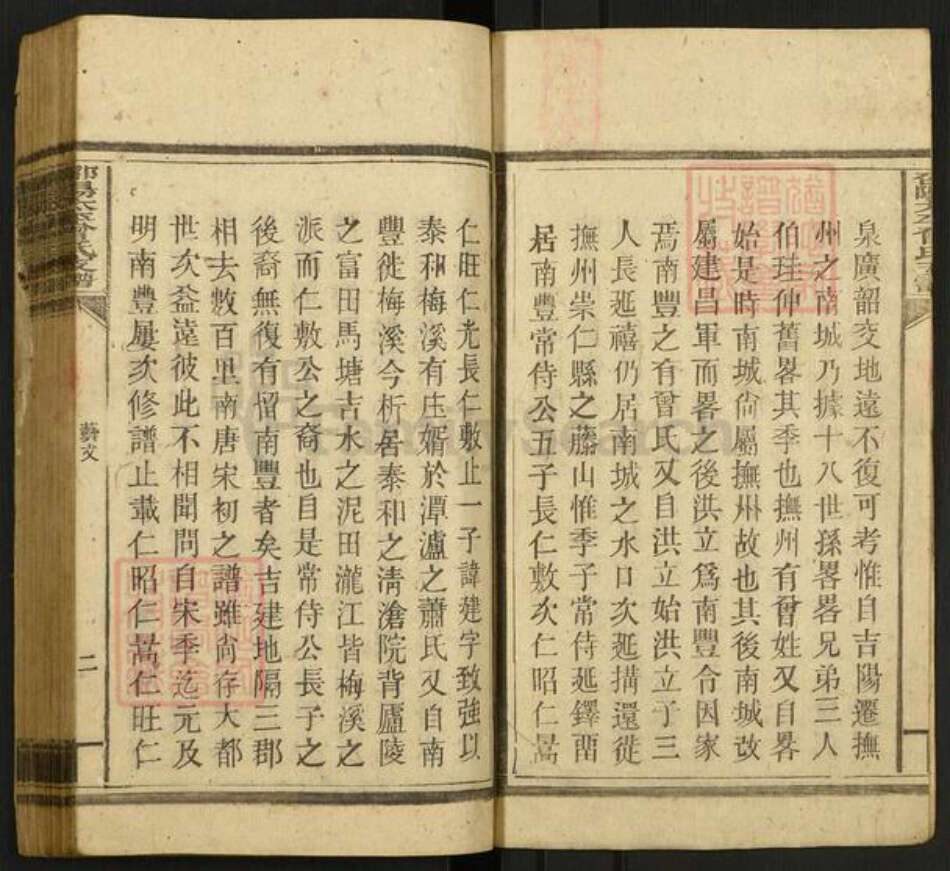 泉廣韶交地遠不復可考惟自吉陽遷撫
州之南城乃據十八世孫畧畧兄弟三人
伯珪仲舊畧其季也撫州有曾姓又自畧
始是時南城尙屬撫州故也其後南城改
屬建昌軍而畧之後洪立爲南豐令因家
焉南豐之有曾氏又自洪立始洪立子三
人長延禧仍居南城之水口次延搆還徙
撫州崇仁縣之藤山惟季子常侍延鐸畱
居南豐常侍公五子長仁敷次仁昭仁暠
仁旺仁光長仁敷止一子諱建字致強以
泰和梅溪有庄婿於潭瀘之蕭氏又自南
豐徙梅溪今析居泰和之淸滄院背廬陵
之富田馬塘吉水之泥田瀧江皆梅溪之
派而仁敷公之裔也自是常侍公長子之
後裔無復有留南豐者矣吉建地隔三郡
相去數百里南唐宋初之譜雖尙存大都
世次益遠彼此不相聞問自宋季迄元及
明南豐屢次修譜止載仁昭仁暠仁旺仁
藝文
二